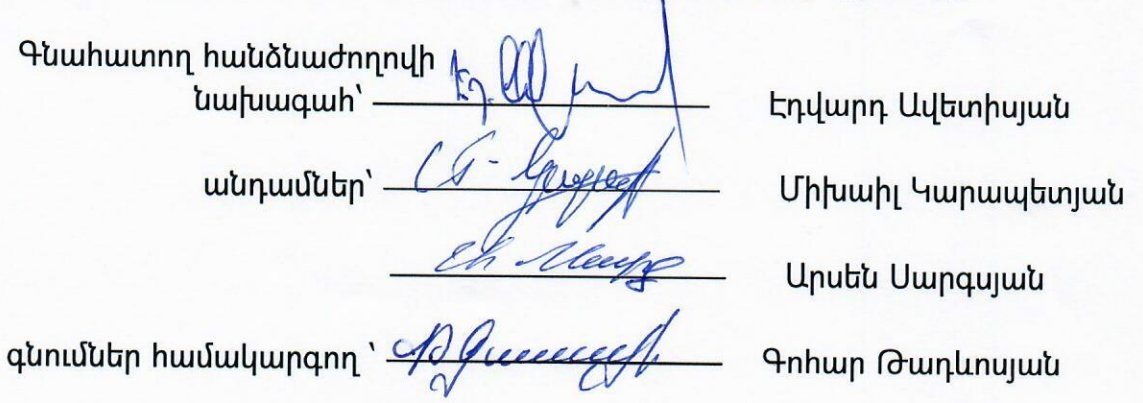 Գնահատող հանձնաժողովի
նախագահ՝ Էդվարդ Ավետիսյան
անդամներ՝ Միխաիլ Կարապետյան
Արսեն Սարգսյան
գնումներ համակարգող ՝ Գոհար Թադևոսյան